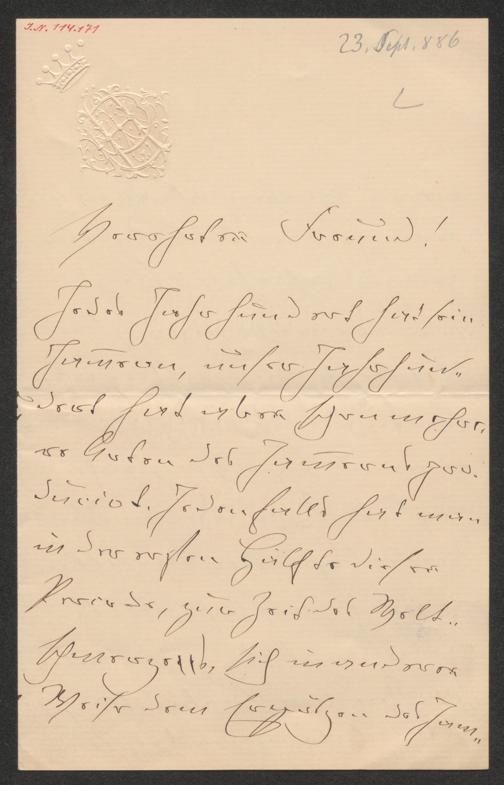 I.N. 114.171
23. Sept. 886
Verehrter Freund!
Jedes Jahrhundert hat sein
Jammern, unser Jahrhun-
dert hat aber schon mehre-
re Arten des Jammers pro-
duciert. Jedenfalls hat man
in der ersten Hälfte dieser
Periode, zur Zeit des Welt-
schmerzes, sich in anderer
Weise dem des Jam-